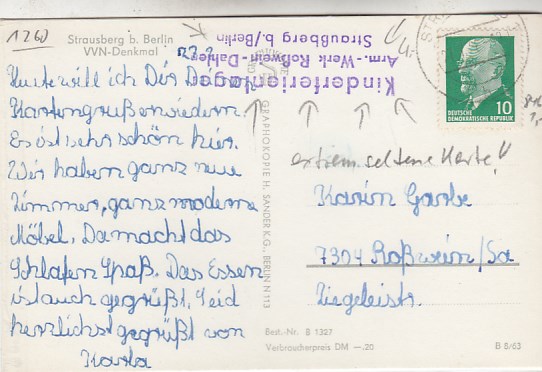 1260
Strausberg b. Berlin
VVN-Denkmal
Heute will ich Dir Deinen
Kartengruß erwiedern.
Es ist sehr schön hier.
Wir haben ganz neue
Zimmer, ganz moderne
Möbel. Da macht das
Schlafen Spaß. Das Essen
ist auch
gegrüßt. Seid
herzlichst gegrüßt von
Karla
GRAPHOKOPIE H. SANDER K.G., BERLIN N 113
Kinderferienlager
Arm.-Werk Roßwein-Dahlen
Straußberg b./Berlin
STR
10
DEUTSCHE
DEMOKRATISCHE REPUBLIK
extrem seltene Karte!!
Karin Garbe
7304 Roßwein/Sa
Ziegeleistr.
Best.-Nr. B 1327
Verbraucherpreis DM —.20
B 8/63